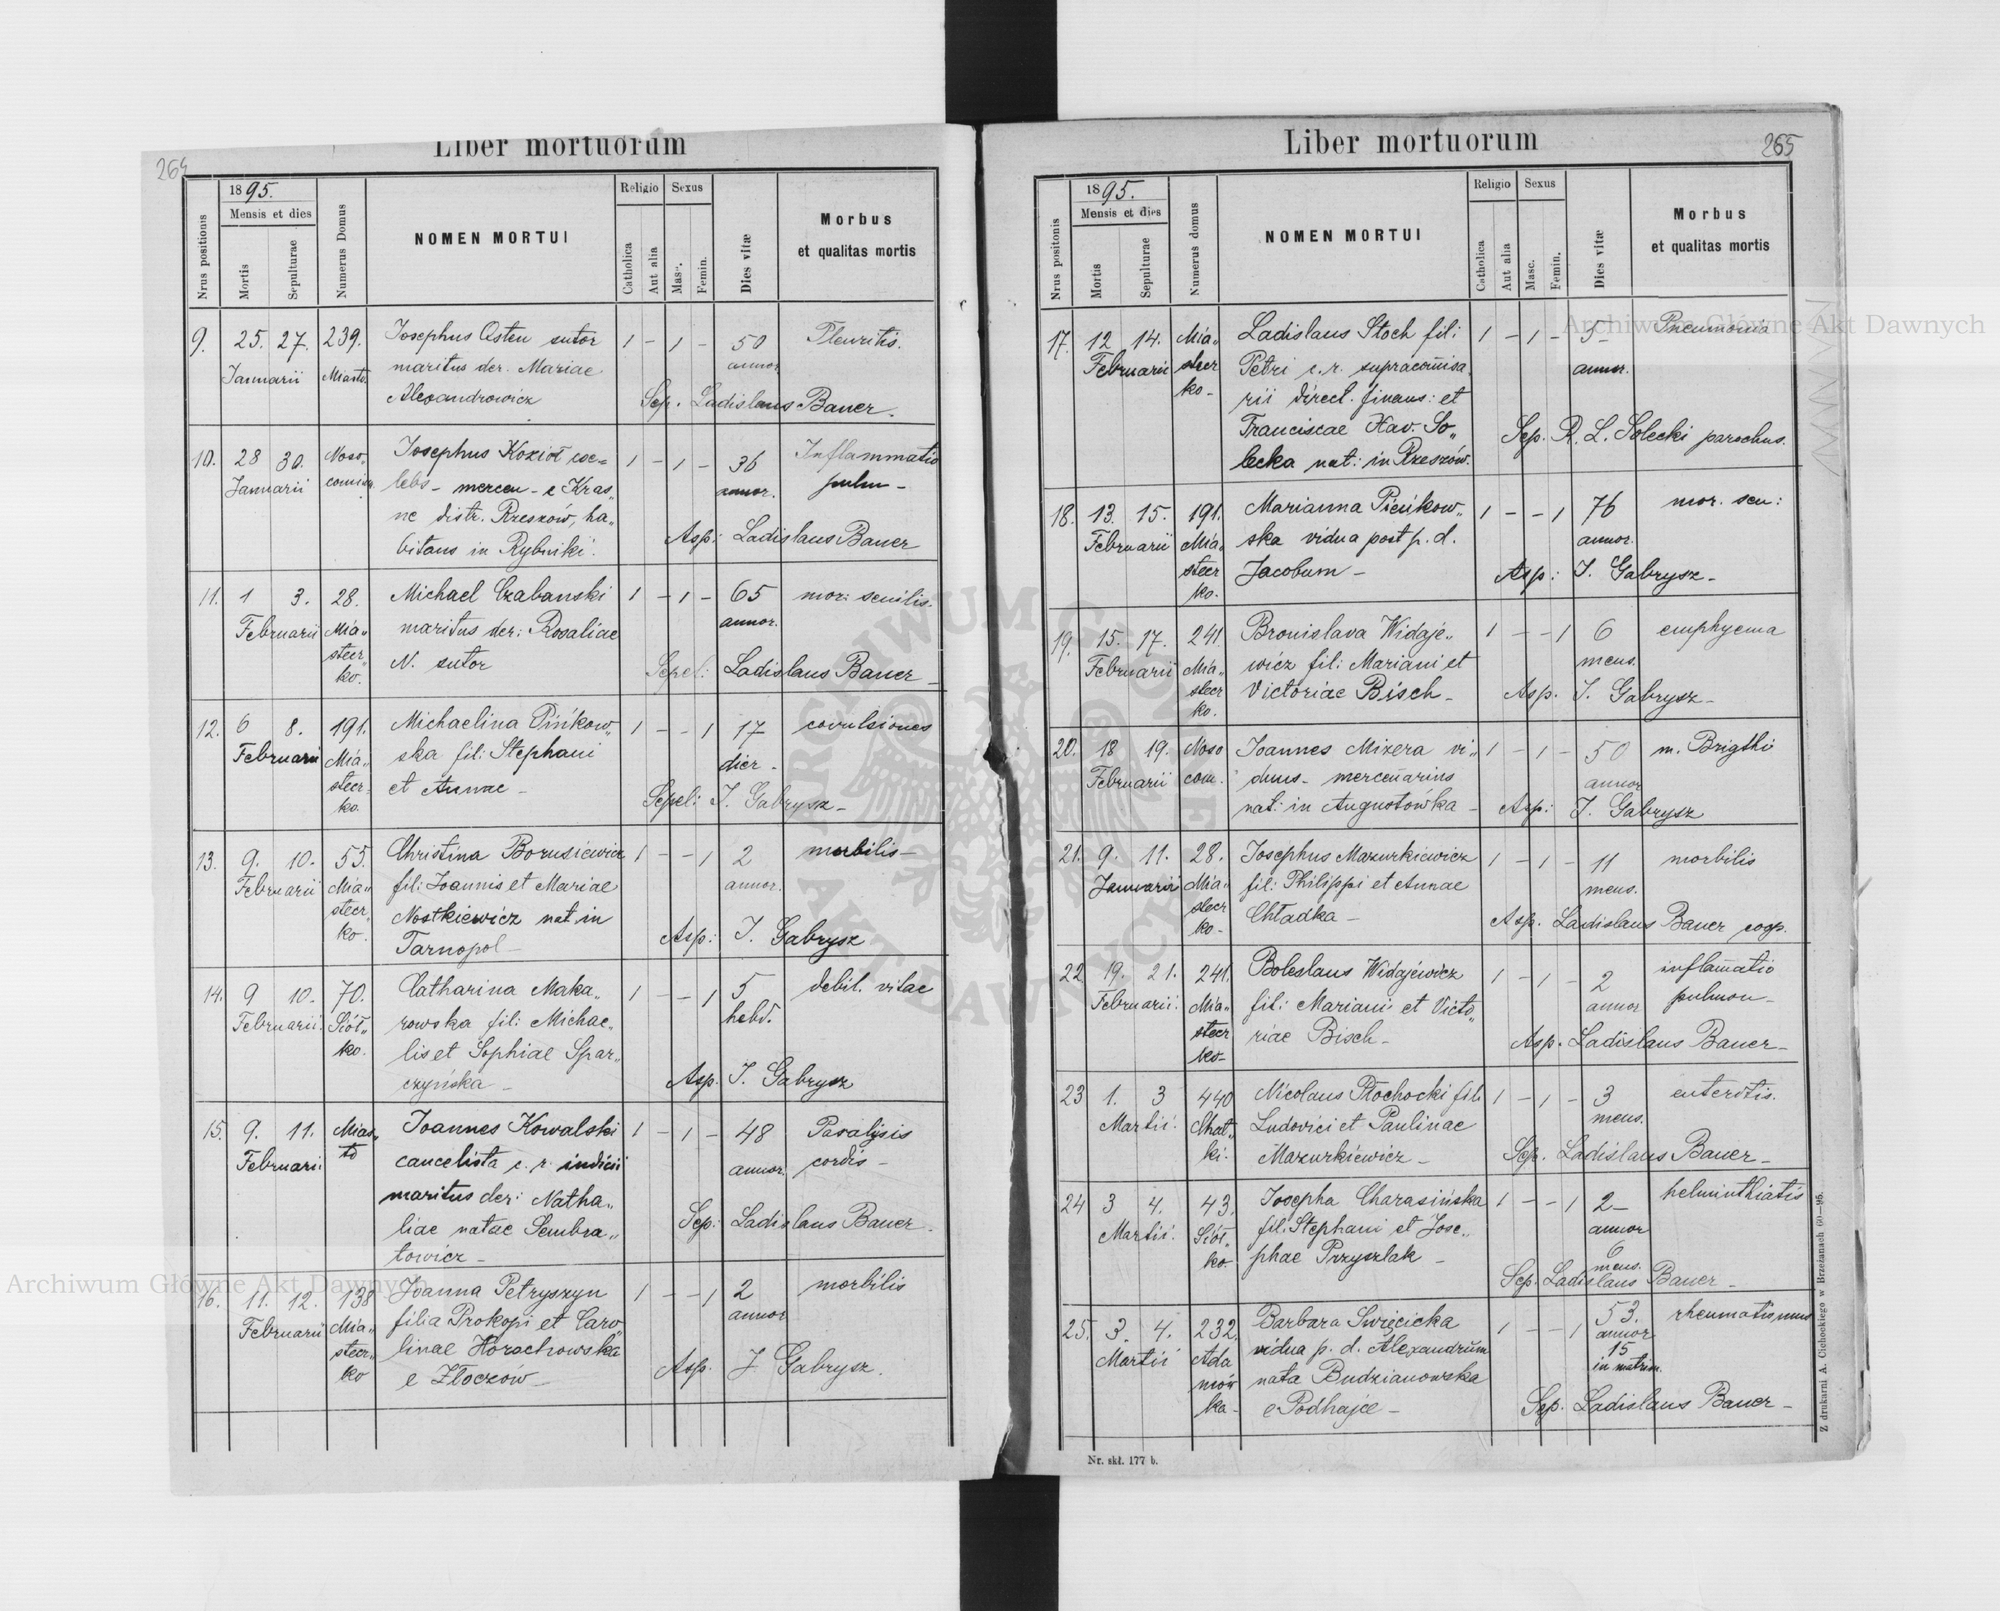 264
Liber mortuorum
Nrus positionis
1895.
Mensis et dies
Mortis
Sepulturae
Numerus Domus
NOMEN MORTUI
Religio
Catholica
Aut alia
Sexus
Masc.
Femin.
Dies vitæ
Morbus
et qualitas mortis
9. 25. 27. 239. Josephus Osten sutor 1 – 1 – 50 Pleuritis.
Januarii Miasto maritus der. Mariae annor.
Alexandrowicz Sep. Ladislaus Bauer.
10. 28 30. Noso- Josephus Kozioł coe= 1 – 1 – 36 Inflammatio
Januarii comium lebs – mercen – e Kras„ annor. pulm –
ne distr. Rzeszów, ha„
bitans in Rybniki. Asp: Ladislaus Bauer
11. 1 3. 28. Michael Czabanski 1 – 1 – 65 mor: senilis.
Februarii Mia„ maritus der: Rosaliae annor.
stecz„ N. sutor Sepel: Ladislaus Bauer –
ko.
12. 6 8. 191. Michaelina Pińkow„ 1 – – 1 17 covulsiones
Februarii Mia„ ska fil: Stephani dier –
stecz„ et Annae – Sepel: J. Gabrysz –
ko.
13. 9. 10. 55. Christina Borusiewicz 1 – – 1 2 morbilis –
Februarii Mia„ fil: Joannis et Mariae annor.
stecz„ Nostkiewicz nat in
ko. Tarnopol – Asp: J. Gabrysz
14. 9 10. 70. Catharina Maka„ 1 – – 1 5 debil. vitae
Februarii. Siół„ rowska fil: Michae„ hebd.
ko. lis et Sophiae Spar„
czyńska – Asp. J. Gabrysz
15. 9. 11. Mias„ Joannes Kowalski 1 – 1 – 48 Paralysis
Februarii to cancelista c. r. indicii annor. cordis –
maritus der: Natha„
liae natae Sembra„ Sep: Ladislaus Bauer.
towicz –
16. 11. 12. 138 Joanna Petryszyn 1 – – 1 2 morbilis
Februarii Mia„ filia Prokopi et Caro„ annor
stecz„ linae Horochowska
ko e Złoczów – Asp. J Gabrysz.
265
Liber mortuorum
Nrus positonis
1895.
Mensis et dies
Mortis
Sepulturae
Numerus domus
NOMEN MORTUI
Religio
Catholica
Aut alia
Sexus
Masc.
Femin.
Dies vitæ
Morbus
et qualitas mortis
17. 12 14. Mia„ Ladislaus Stoch fil: 1 – 1 – 5 – Pneumonia
Februarii stecz Petri c. r. supracom̄isa annor.
ko – rii direct. finans: et
Franciscae Xav. So„ Sep. R. L. Solecki parochus.
lecka nat: in Rzeszów.
18. 13. 15. 191. Marianna Pieńkow„ 1 – – 1 76 mor. sen:
Februarii Mia„ ska vidua post p. d. annor.
stecz Jacobum – Asp: J. Gabrysz –
ko.
19. 15. 17. 241. Bronislava Widaje„ 1 – – 1 6 emphycma
Februarii Mia„ wicz fil: Mariani et mens.
stecz Victoriae Bisch – Asp. J. Gabrysz –
ko.
20. 18 19. Noso Joannes Mizera vi„ 1 – 1 – 50 m. Brigthi
Februarii com. duus – mercenarius annor
nat: in Augustówka – Asp: J. Gabrysz
21. 9. 11. 28. Josephus Mazurkiewicz 1 – 1 – 11 morbilis
Januarii Mia„ fil: Philippi et Annae mens.
stecz Chładka – Asp. Ladislaus Bauer coop.
ko –
22 19. 21. 241. Boleslaus Widajewicz 1 – 1 – 2 inflam̄atio
Februarii. Mia„ fil: Mariani et Victo„ annor pulmon –
stecz riae Bisch – Asp. Ladislaus Bauer –
ko –
23 1. 3 440 Nicolaus Płochocki fil: 1 – 1 – 3 enteritis.
Martii. Chat„ Ludovici et Paulinae mens.
ki. Mazurkiewicz – Sep. Ladislaus Bauer –
24 3 4. 43. Josepha Charasińska 1 – – 1 2 – helminthiatis
Martii. Siół„ fil: Stephani et Jose„ annor
ko phae Przyszlak – 6
mens.
Sep. Ladislaus Bauer –
25. 3. 4. 232. Barbara Swięcicka 1 – – 1 53. rheumatismus
Martii Ada vidua p. d. Alexandrum annor
mów nata Budzianowska 15
ka – e Podhajce – in matrim.
Sep. Ladislaus Bauer –
Nr. skł. 177 b.
Z drukarni A. Cichockiego w Brzeżanach 60—95.
Archiwum Główne Akt Dawnych
Archiwum Główne Akt Dawnych
ARCHIWUM GŁÓWNE
AKT DAWNYCH